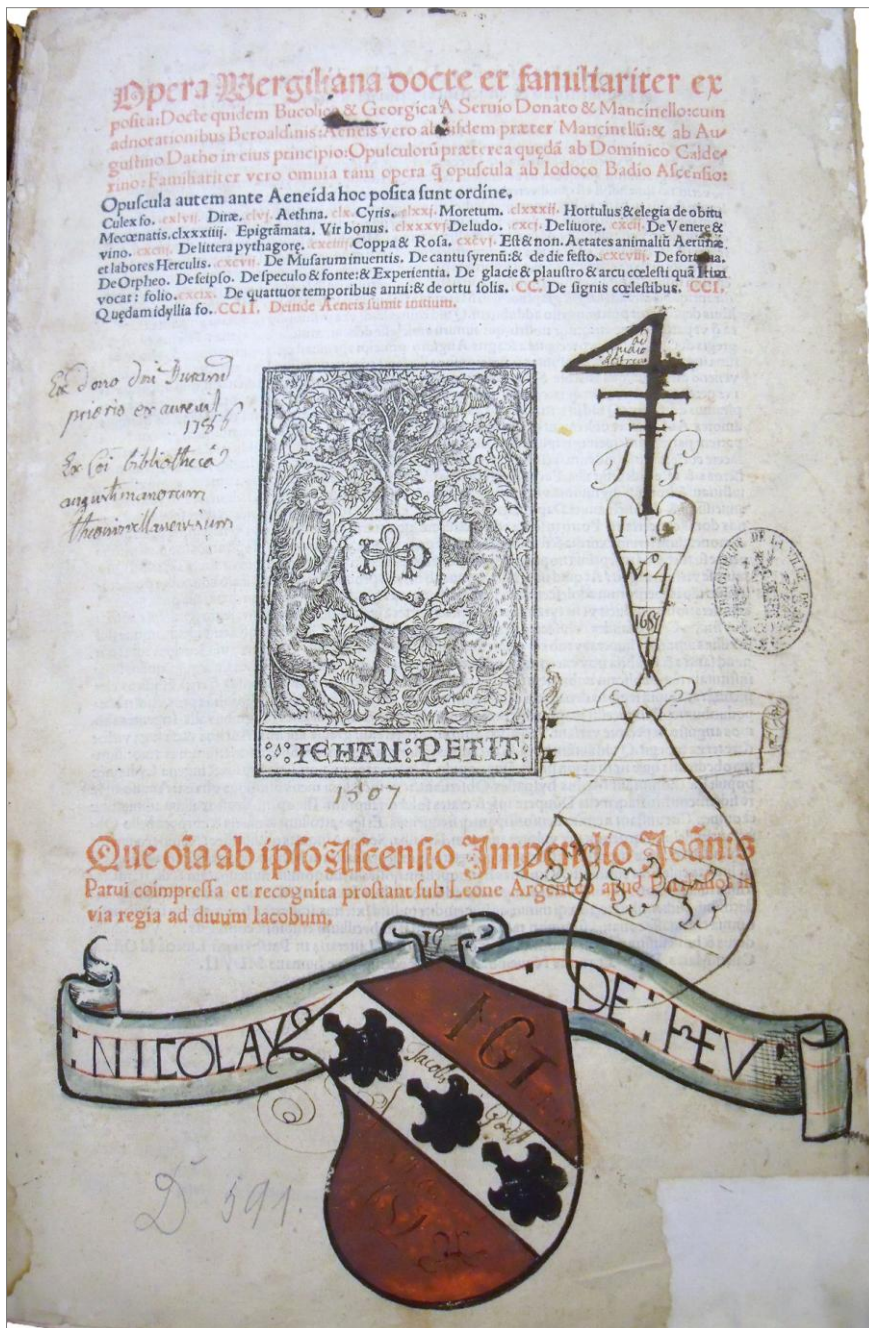 Opera Vergiliana docte et familiariter ex
posita: Docte quidem Bucolica & Georgica A Seruio Donato & Mancinello: cum
adnotationibus Beroaldinis: Aeneis vero ab iisdem præter Mancinellũ: & ab Au-
gustino Datho in eius principio: Opusculorũ præterea quędã ab Dominico Calde-
rino: Familiariter vero omnia tam opera q̃ opuscula ab Iodoco Badio Ascensio:
Opuscula autem ante Aeneida hoc posita sunt ordine.
Culex fo. cxlvij. Diræ. clvj. Aethna. clx. Cyris. clxxj. Moretum. clxxxij. Hortulus & elegia de obitu
Mecœnatis. clxxxiiij. Epigrãmata. Vir bonus. clxxxvj De ludo. cxcj. De liuore. cxcij. De Venere &
vino. cxciij. De littera pythagorę. cxciiij Coppa & Rosa. cxcvj. Est & non. Aetates animaliũ Aerumnæ
et labores Herculis. cxcvij. De Musarum inuentis. De cantu syrenũ: & de die festo. cxcviij. De fortuna.
De Orpheo. De seipso. De speculo & fonte: & Experientia. De glacie & plaustro & arcu cœlesti quã Irim
vocat: folio. cxcix. De quattuor temporibus anni: & de ortu solis. CC. De signis cœlestibus. CCI.
Quędam idyllia fo. CCII. Deinde Aeneis sumit initium.
Ex dono dni Durand
prioris ex aureuil
1786
Ex coi bibliothecâ
augustinianorum
theonisvillanensium
ad
I G
I G
No 4
1688
BIBLIOTHEQUE DE LA VILLE DE
I P
IEHAN PETIT
1507
Que oĩa ab ipso Ascensio Impendio Joãnis
Parui coimpressa et recognita prostant sub Leone Argenteo apud Parrhisios in
via regia ad diuum Iacobum.
NICOLAVS DE HEV
IGI
Jacobs
Goest
D 591.